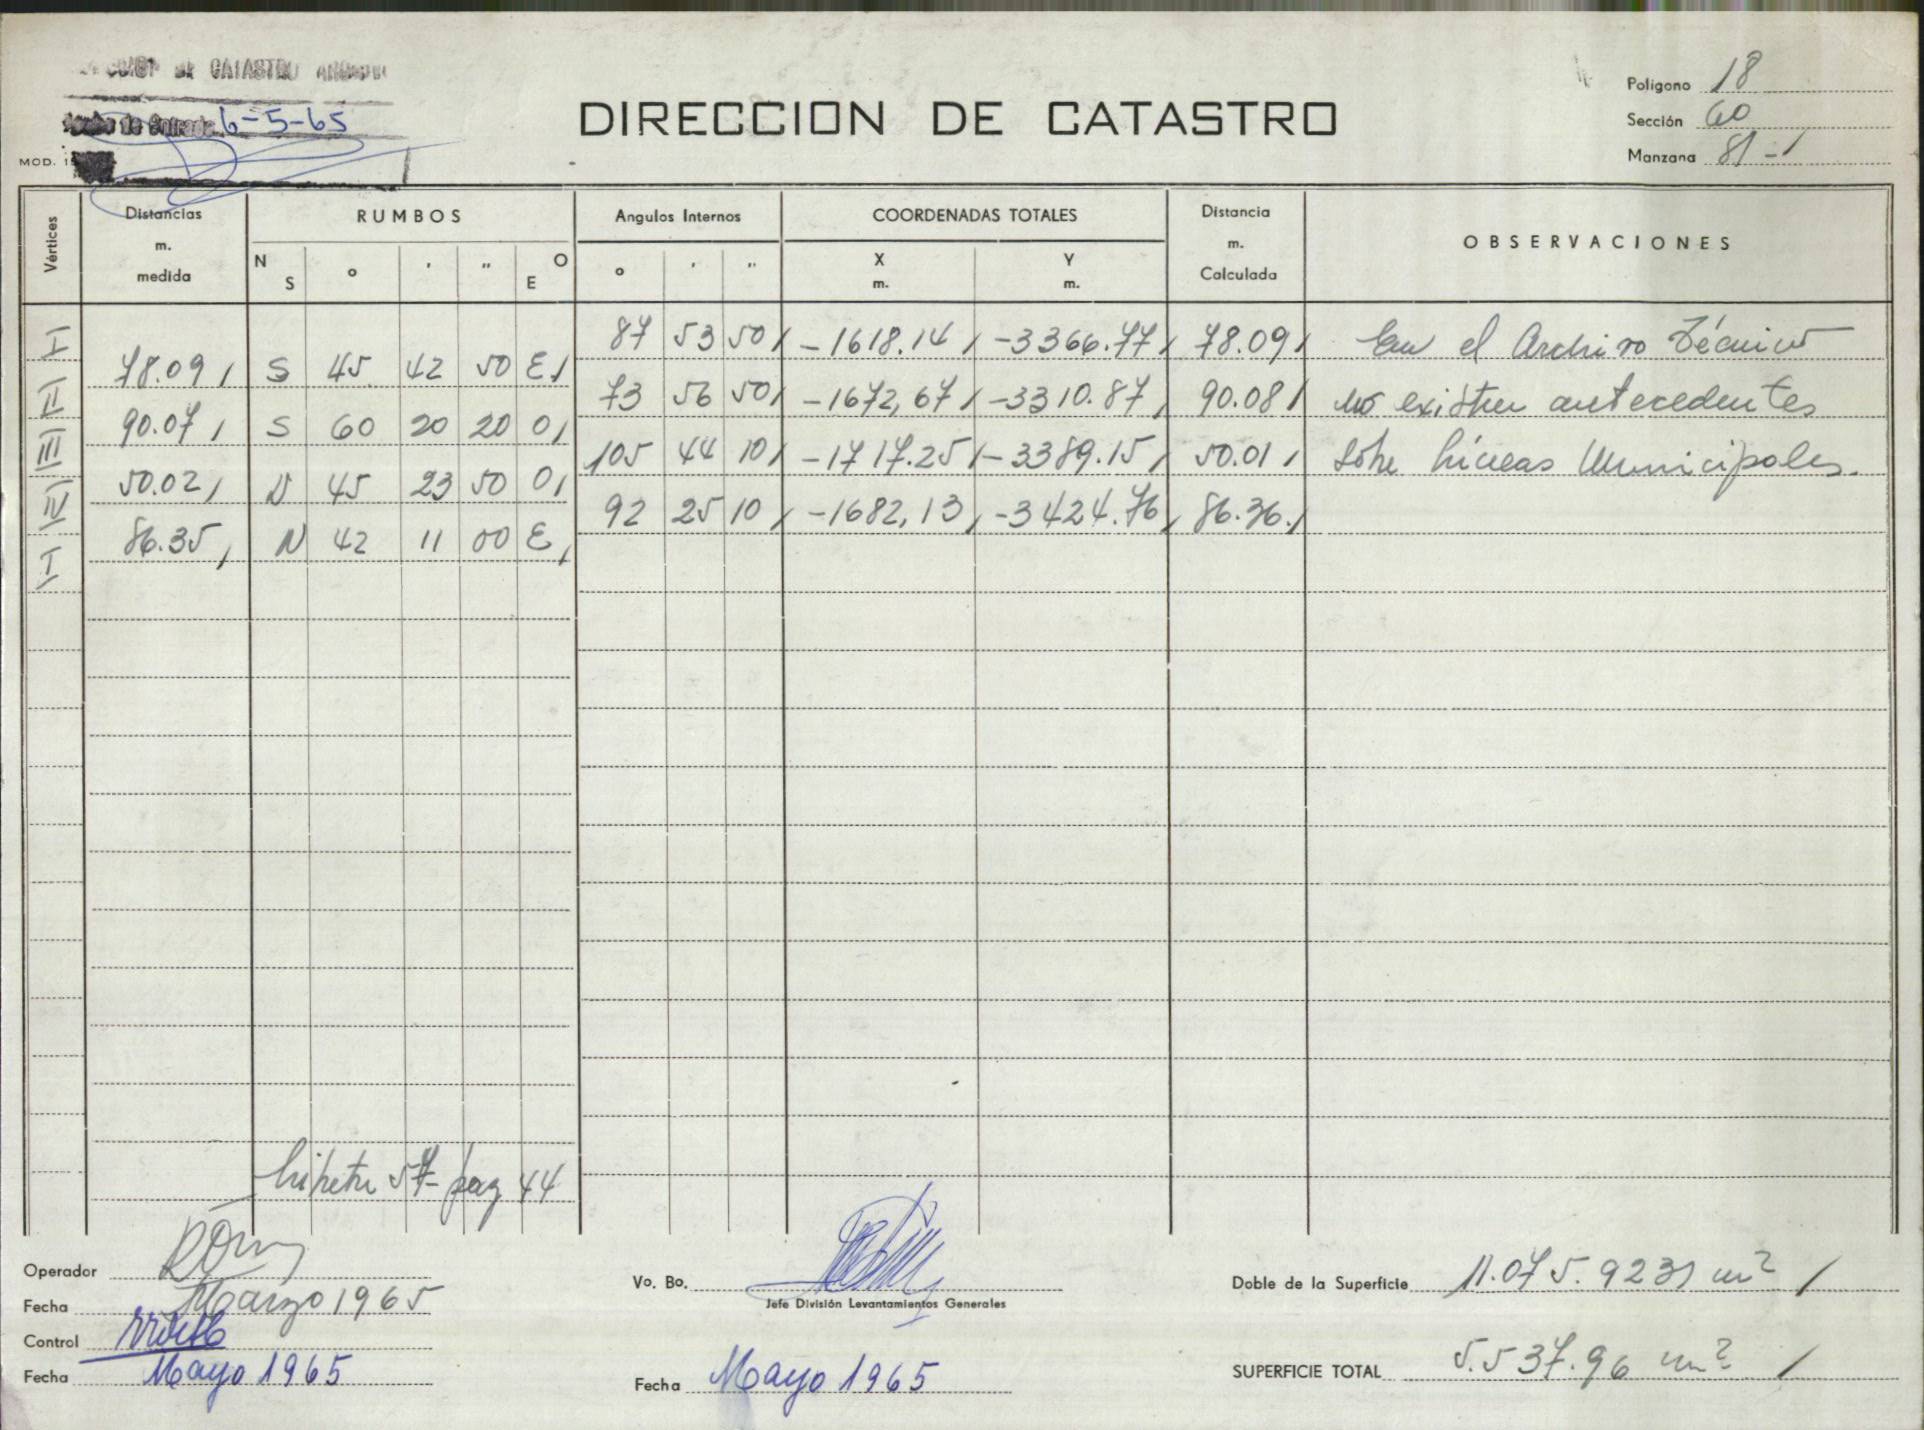 DE CATASTRO
de Entrada 6-5-65
MOD.
DIRECCION DE CATASTRO
Polígono 18
Sección 60
Manzana 81-1
Vértices
Distancias m. medida
RUMBOS
N S ° ' " O E
Angulos Internos
° ' "
COORDENADAS TOTALES
X m. Y m.
Distancia m. Calculada
OBSERVACIONES
I 87 53 50 -1618.14 -3366.77 78.09 En el Archivo Técnico
78.09 S 45 42 50 E
II 73 56 50 -1672,67 -3310.87 90.08 no existen antecedentes
90.07 S 60 20 20 O
III 105 44 10 -1717.25 -3389.15 50.01 sobre Líneas Municipales.
50.02 N 45 23 50 O
IV 92 25 10 -1682,13 -3424.76 86.36
86.35 N 42 11 00 E
I
Libreta 57- pag 44
Operador
Fecha Marzo 1965
Control
Fecha Mayo 1965
Vo. Bo.
Jefe División Levantamientos Generales
Fecha Mayo 1965
Doble de la Superficie 11.075.9231 m²
SUPERFICIE TOTAL 5.537.96 m²